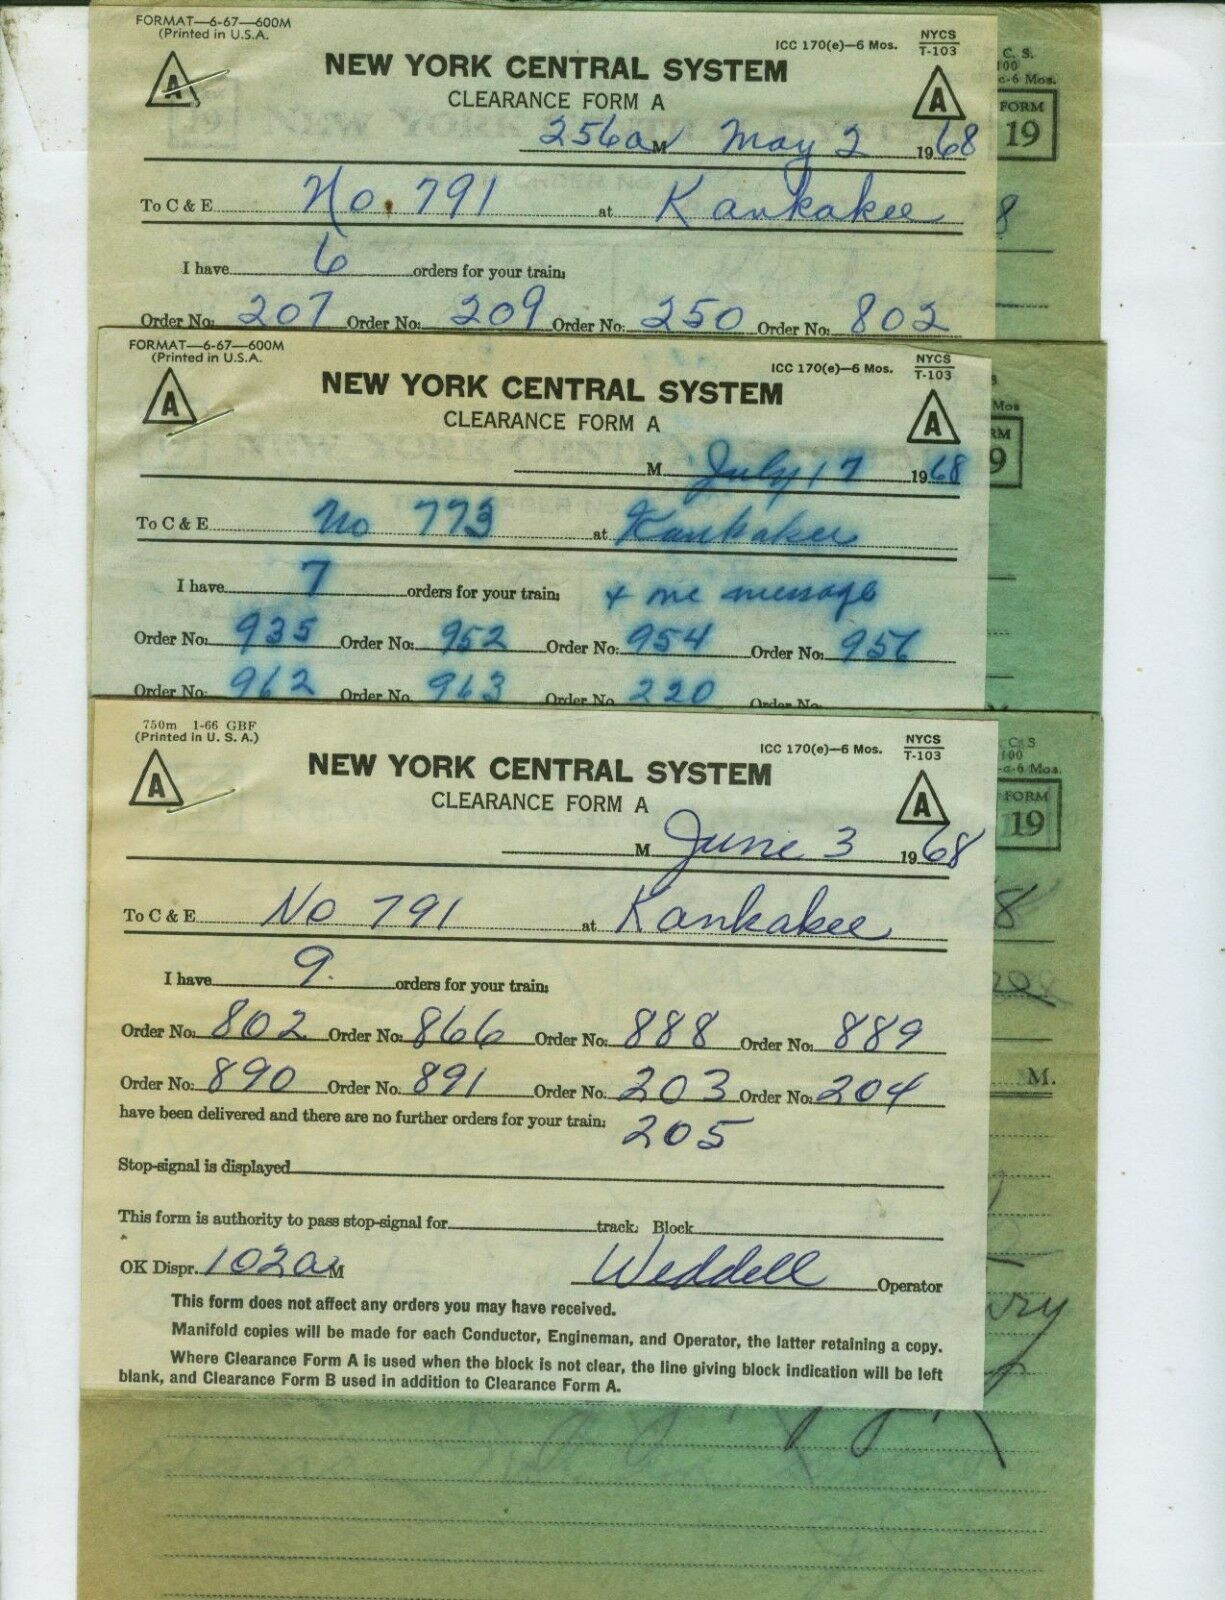 FORMAT—6-67—600M
(Printed in U.S.A.
ICC 170(e)—6 Mos.
NYCS
T-103
C. S.
100
c-6 Mos.
A
NEW YORK CENTRAL SYSTEM
A
FORM
19
CLEARANCE FORM A
256a M May 2 1968
To C & E No. 791 at Kankakee
8
I have 6 orders for your train:
Order No: 207 Order No: 209 Order No: 250 Order No: 802
FORMAT—6-67—600M
(Printed in U.S.A.
ICC 170(e)—6 Mos.
NYCS
T-103
S
Mos
A
NEW YORK CENTRAL SYSTEM
A
RM
9
CLEARANCE FORM A
M July 17 1968
To C & E No 773 at Kankakee
I have 7 orders for your train: + one message
Order No: 935 Order No: 952 Order No: 954 Order No: 956
Order No: 962 Order No. 963 Order No. 220 Order No.
750m 1-66 GBF
(Printed in U. S. A.)
ICC 170(e)—6 Mos.
NYCS
T-103
C. S
100
-c-6 Mos.
A
NEW YORK CENTRAL SYSTEM
A
FORM
19
CLEARANCE FORM A
M June 3 1968
To C & E No 791 at Kankakee
8
I have 9. orders for your train:
Order No: 802 Order No: 866 Order No: 888 Order No: 889
Order No: 890 Order No. 891 Order No. 203 Order No: 204
M.
have been delivered and there are no further orders for your train: 205
Stop-signal is displayed
This form is authority to pass stop-signal for track: Block
OK Dispr. 102a M Weddell Operator
This form does not affect any orders you may have received.
Manifold copies will be made for each Conductor, Engineman, and Operator, the latter retaining a copy.
Where Clearance Form A is used when the block is not clear, the line giving block indication will be left
blank, and Clearance Form B used in addition to Clearance Form A.